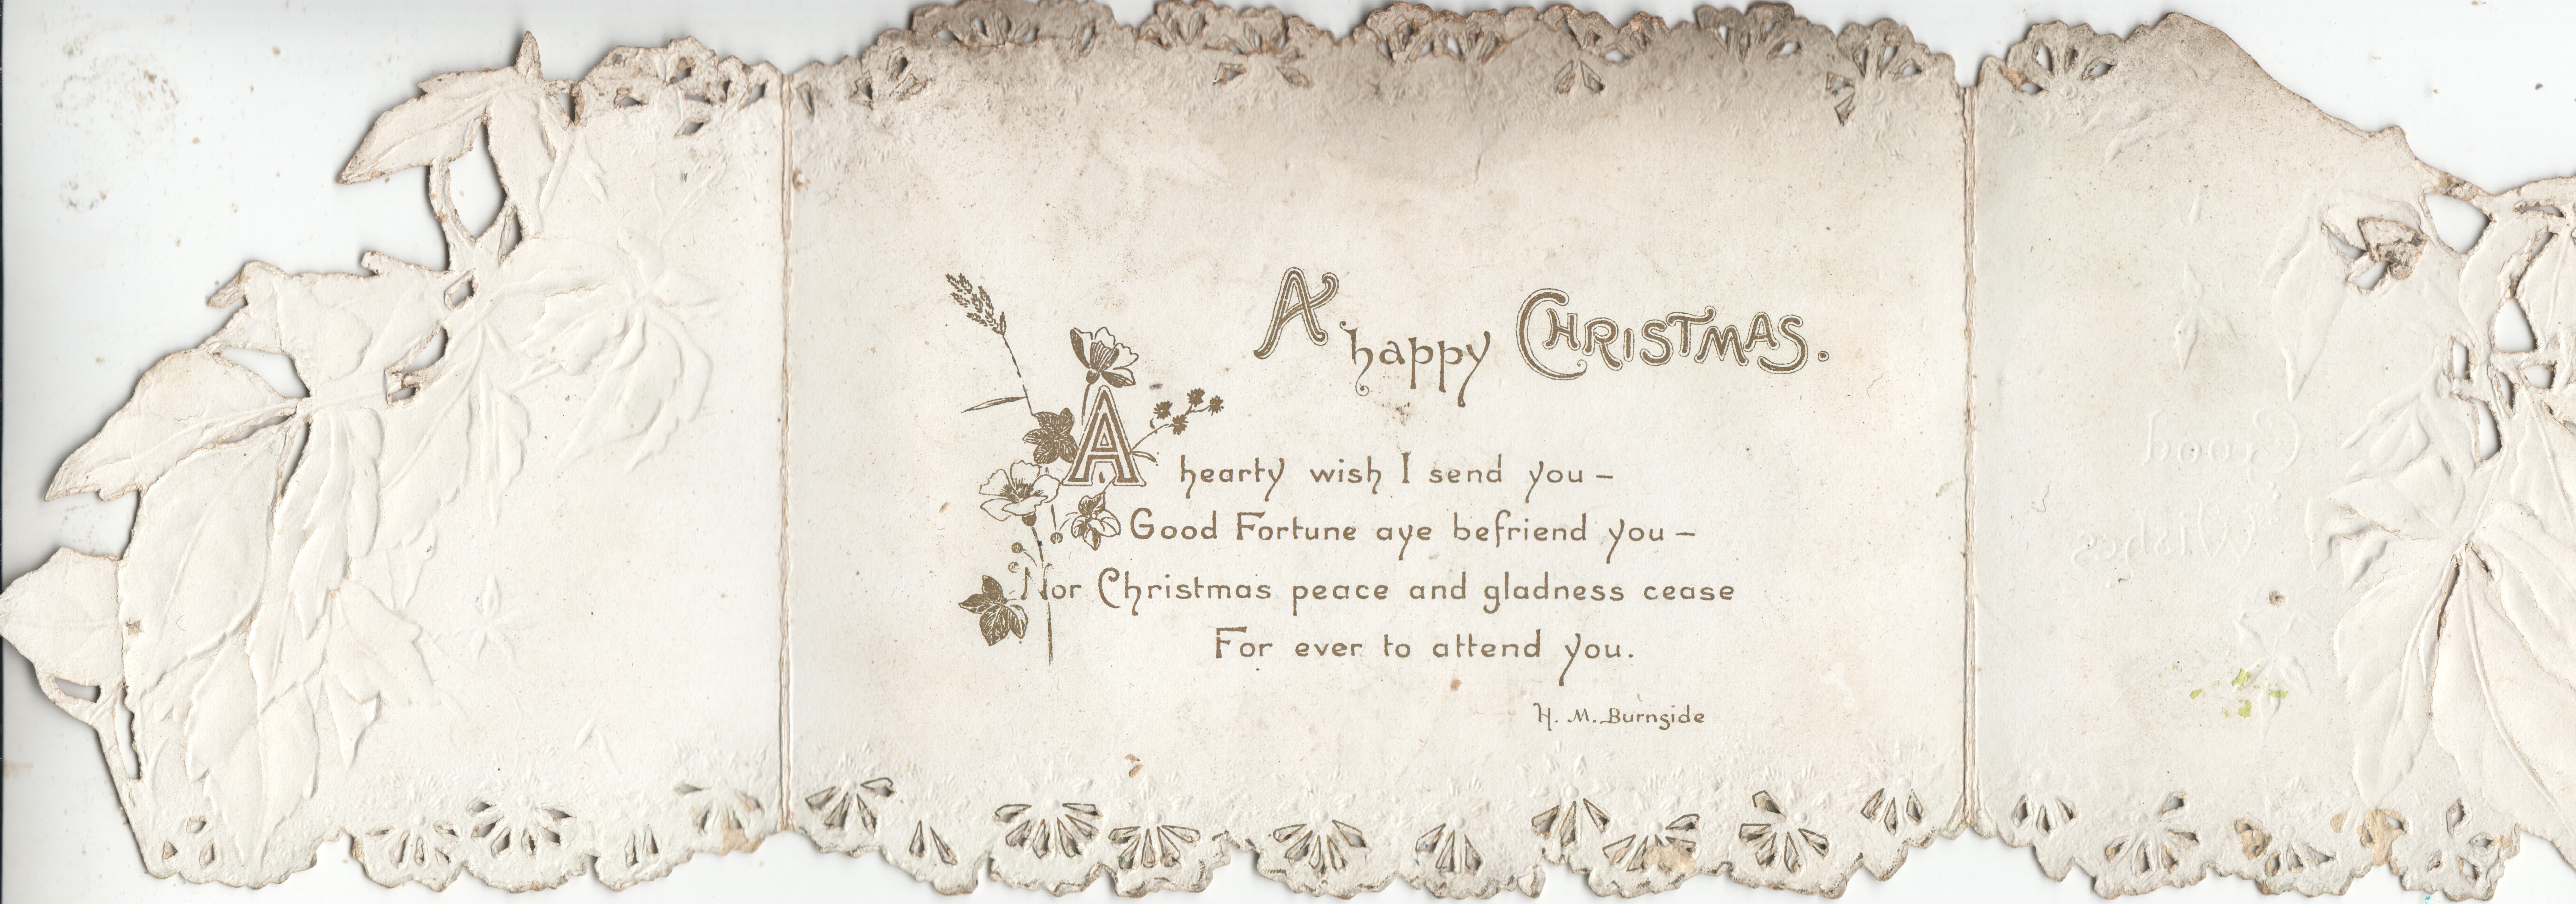 A happy CHRISTMAS.
A hearty wish I send you –
Good Fortune aye befriend you –
Nor Christmas peace and gladness cease
For ever to attend you.
H. M. Burnside
Good
Wishes